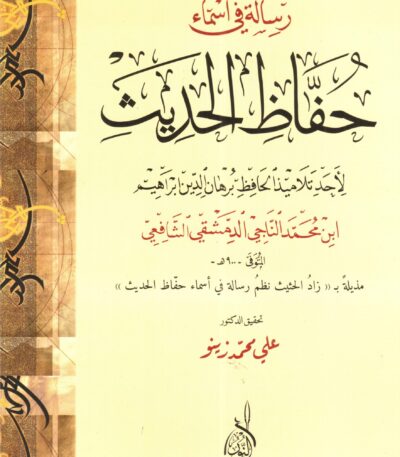 رسالة في أسماء
حُفَّاظِ الحَدِيثِ
لأحد تلاميذ الحافظ برهان الدين إبراهيم
ابن محمد الناجي الدمشقي الشافعي
المتوفى - ٩٠٠هـ -
مذيلة بـ « زادُ الحثيث نظمُ رسالة في أسماء حفّاظ الحديث »
تحقيق الدكتور
علي محمد زينو